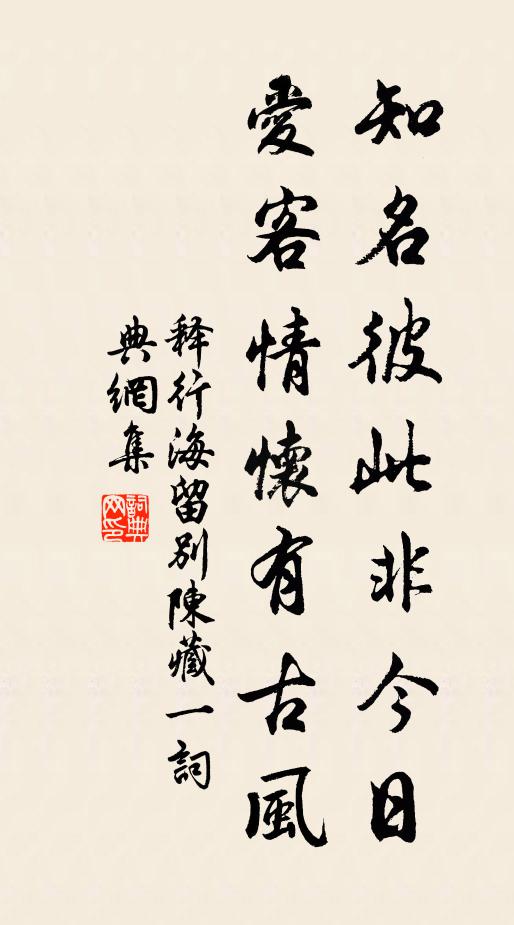 知名彼此非今日
愛客情懷有古風
释行海留别陳藏一詞
典網集
詞典網印